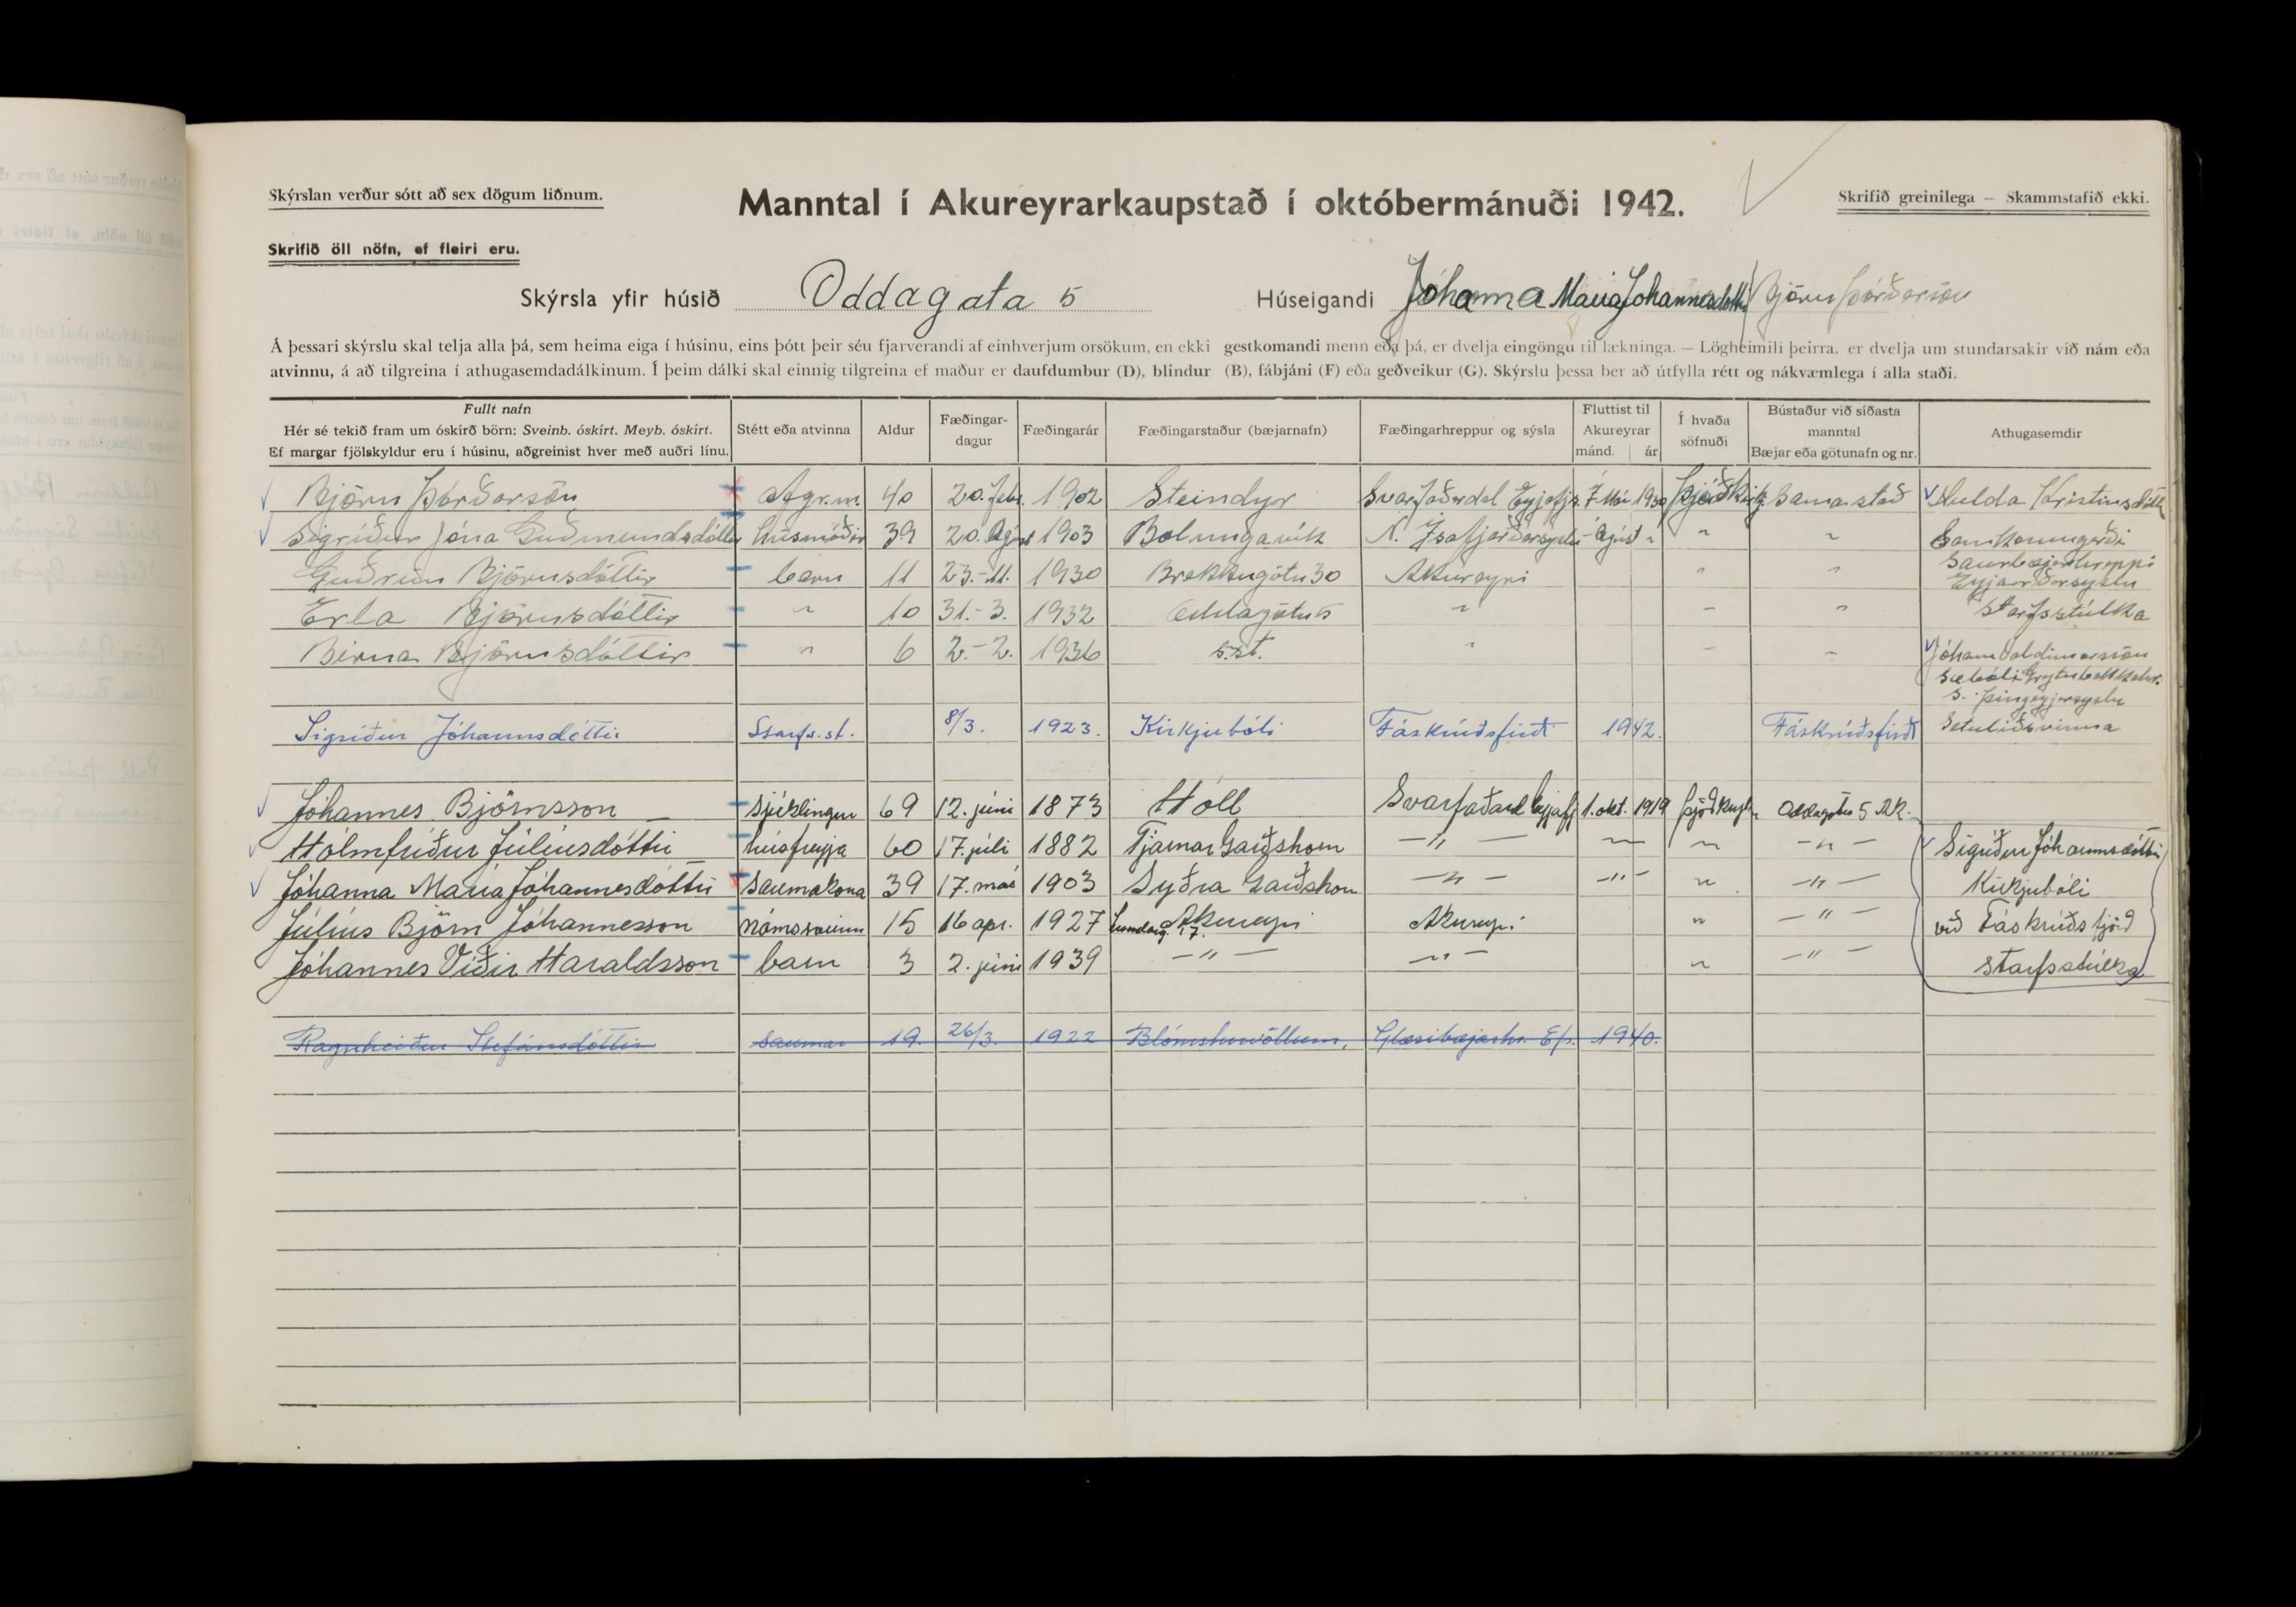 Skýrslan verður sótt að sex dögum liðnum.
Manntal í Akureyrarkaupstað í októbermánuði 1942.
Skrifið greinilega — Skammstafið ekki.
Skrifið öll nöfn, ef fleiri eru.
Skýrsla yfir húsið Oddagata 5 Húseigandi Jóhanna María Jóhannesdóttir / Björn Þórðarson
Á þessari skýrslu skal telja alla þá, sem heima eiga í húsinu, eins þótt þeir séu fjarverandi af einhverjum orsökum, en ekki gestkomandi menn eða þá, er dvelja eingöngu til lækninga. — Lögheimili þeirra, er dvelja um stundarsakir við nám eða
atvinnu, á að tilgreina í athugasemdadálkinum. Í þeim dálki skal einnig tilgreina ef maður er daufdumbur (D), blindur (B), fábjáni (F) eða geðveikur (G). Skýrslu þessa ber að útfylla rétt og nákvæmlega í alla staði.
Fullt nafn
Hér sé tekið fram um óskírð börn: Sveinb. óskírt. Meyb. óskírt.
Ef margar fjölskyldur eru í húsinu, aðgreinist hver með auðri línu.
Stétt eða atvinna
Aldur
Fæðingar-
dagur
Fæðingarár
Fæðingarstaður (bæjarnafn)
Fæðingarhreppur og sýsla
Fluttist til
Akureyrar
mánd. ár
Í hvaða
söfnuði
Bústaður við síðasta
manntal
Bæjar eða götunafn og nr.
Athugasemdir
Björn Þórðarson Afgr.m. 40 20. febr. 1902 Steindyr Svarfaðardal Eyjafjs. 7 Maí 1930 Þjóðkirkj. Sama stað Hulda Kristinsdóttir
Sigríður Jóna Guðmundsdóttir húsmóðir 39 20. Ágúst 1903 Bolungavík N. Ísafjarðarsýslu - Ágúst " " " Samkomugerði
Guðrún Björnsdóttir barn 11 23.-11. 1930 Brekkugötu 30 Akureyri " " Saurbæjarhreppi
Eyjafjarðarsýslu
Erla Björnsdóttir " 10 31.-3. 1932 Oddagötu 5 " " " Starfsstúlka
Birna Björnsdóttir " 6 2.-2. 1936 s.st. " " " Jóhann Valdimarsson
Sæbóli Grýtubakkahr.
S. Þingeyjarsýslu
Sigríður Jóhannsdóttir Starfs.st. 8/3. 1923. Kirkjubóli Fáskrúðsfirði 1942. Fáskrúðsfirði Setuliðsvinna
Jóhannes Björnsson sjúklingur 69 12. júní 1873 Hóll Svarfaðard Eyjafj 1. okt. 1919 þjóðkirkju Oddagötu 5 Ak.
Hólmfríður Júlíusdóttir húsfreyja 60 17. júlí 1882 Tjarnar Garðshorn — " — " " — " — Sigríður Jóhannsdóttir
Jóhanna María Jóhannesdóttir saumakona 39 17. maí 1903 Syðra Garðshorn — " — — " — " — " — Kirkjubóli
Júlíus Björn Jóhannesson námssveinn 15 16 apr. 1927 Lundarg. 17. Akureyri Akureyri " — " — við Fáskrúðsfjörð
Jóhannes Víðir Haraldsson barn 3 2. júní 1939 — " — — " — " — " — starfsstúlka
Ragnheiður Stefánsdóttir saumar 19. 26/3. 1922 Blómsturvöllum, Glæsibæjarhr. Ef. 1940.